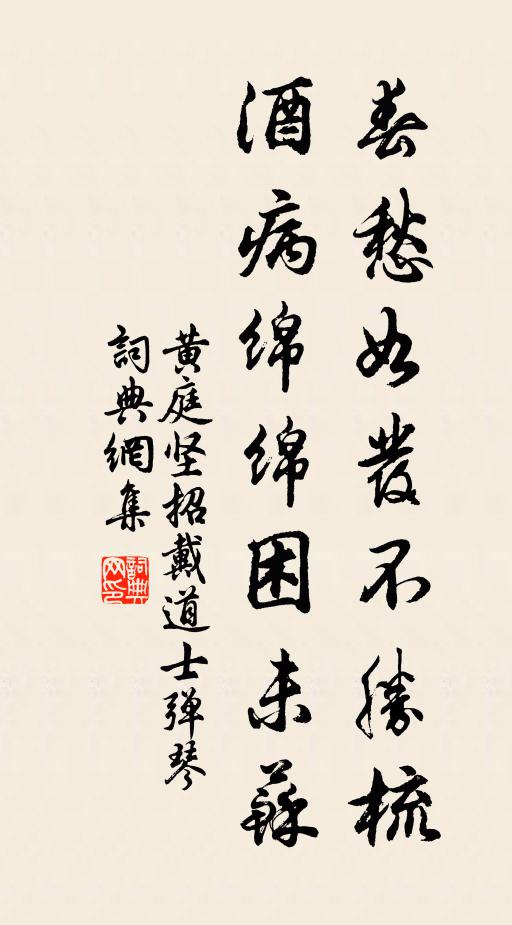 春愁如發不勝梳
酒病绵绵困未蘇
黄庭坚招戴道士弹琴
詞典網集
詞典網印